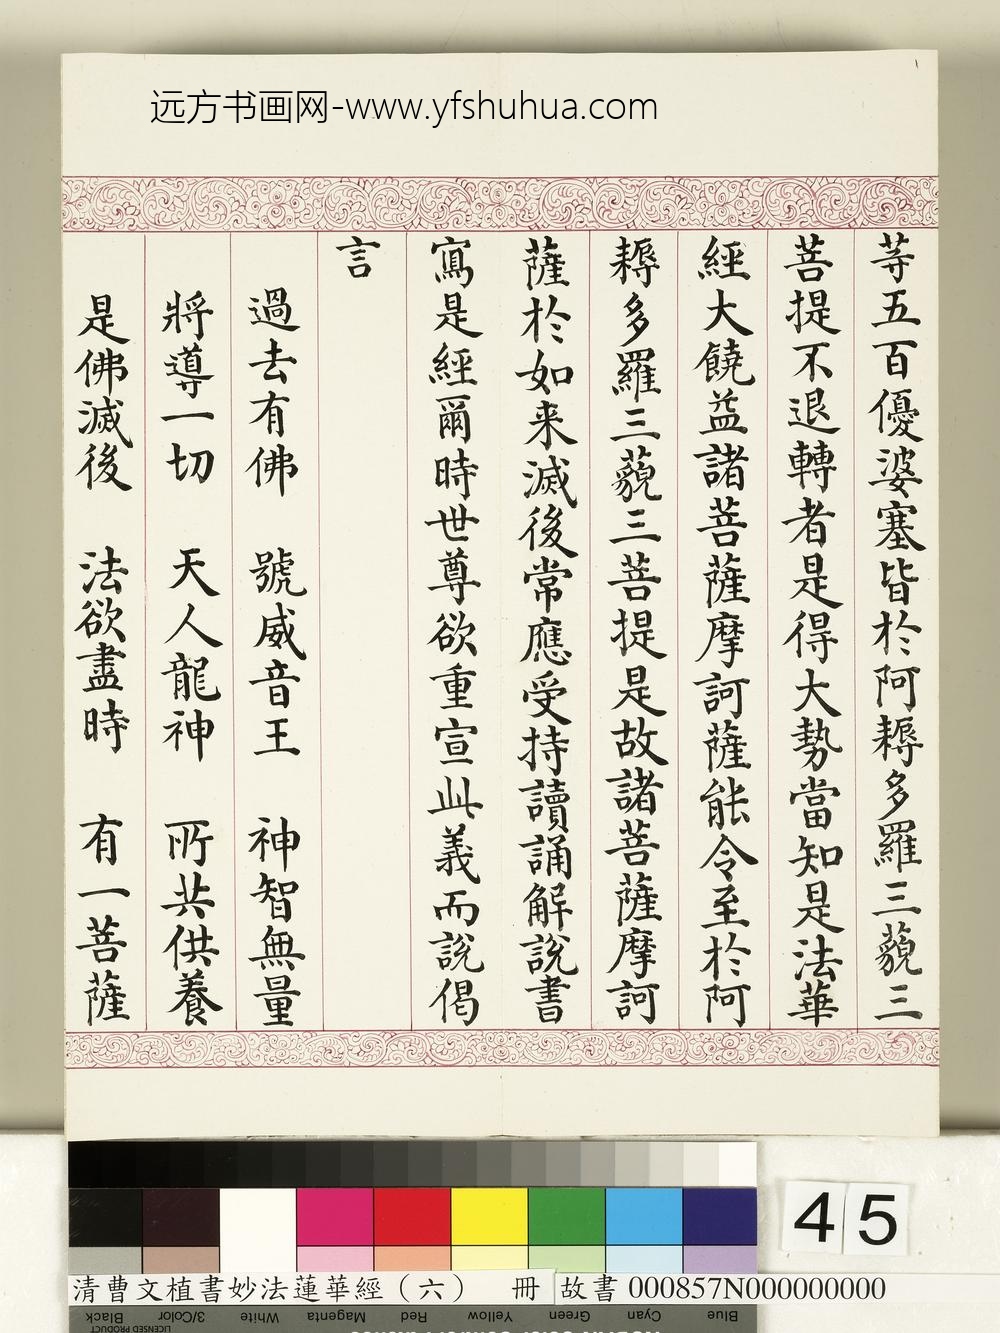 远方书画网-www.yfshuhua.com
等五百優婆塞皆於阿耨多羅三藐三
菩提不退轉者是得大勢當知是法華
經大饒益諸菩薩摩訶薩能令至於阿
耨多羅三藐三菩提是故諸菩薩摩訶
薩於如来滅後常應受持讀誦解說書
寫是經爾時世尊欲重宣此義而說偈
言
過去有佛 號威音王 神智無量
將導一切 天人龍神 所共供養
是佛滅後 法欲盡時 有一菩薩
45
清曹文植書妙法蓮華經（六） 冊 故書 000857N000000000
Blue Cyan Green Yellow Red Magenta White 3/Color Black
LICENSED PRODUCT